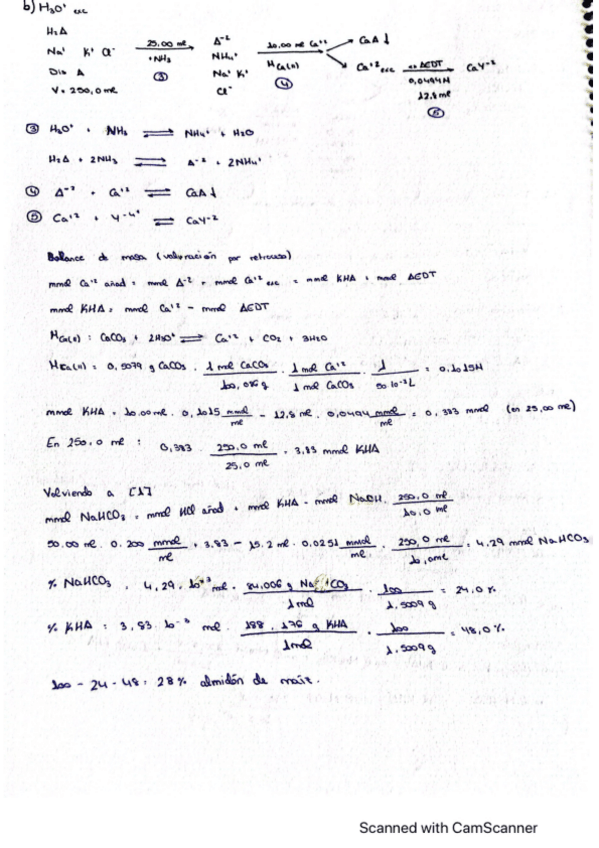 b) H₃O⁺ exc
H₂A
Na⁺ K⁺ Cl⁻
Dis A
V = 250,0 ml
25.00 ml
+NH₃
③
A⁻²
NH₄⁺
Na⁺ K⁺
Cl⁻
10.00 ml Ca⁺²
M Ca(II)
④
CaA↓
Ca⁺² exc
AEDT
0,0494M
12.8 ml
⑤
CaY⁻²
③ H₃O⁺ + NH₃ ⇌ NH₄⁺ + H₂O
H₂A + 2NH₃ ⇌ A⁻² + 2NH₄⁺
④ A⁻² + Ca⁺² ⇌ CaA↓
⑤ Ca⁺² + Y⁻⁴ ⇌ CaY⁻²
Balance de masa (valoración por retroceso)
mmol Ca⁺² añad = mmol A⁻² + mmol Ca⁺² exc = mmol KHA + mmol AEDT
mmol KHA = mmol Ca⁺² - mmol AEDT
M Ca(II) : CaCO₃ + 2H₃O⁺ ⇌ Ca⁺² + CO₂ + 3H₂O
M Ca(II) = 0,5079 g CaCO₃ · 1 mol CaCO₃ / 100,086 g · 1 mol Ca⁺² / 1 mol CaCO₃ · 1 / 50·10⁻³ L = 0.1015M
mmol KHA = 10.00 ml · 0,1015 mmol/ml - 12,8 ml · 0,0494 mmol/ml = 0,383 mmol (en 25,00 ml)
En 250,0 ml : 0,383 · 250,0 ml / 25,0 ml = 3,83 mmol KHA
Volviendo a [1]
mmol NaHCO₃ = mmol HCl añad + mmol KHA - mmol NaOH · 250,0 ml / 10,0 ml
50.00 ml · 0,200 mmol/ml + 3,83 - 15.2 ml · 0,0251 mmol/ml · 250,0 ml / 10,0ml = 4,29 mmol NaHCO₃
% NaHCO₃ = 4,29·10⁻³ mol · 84,006 g NaHCO₃ / 1 mol · 100 / 1.5009 g = 24.0 %
% KHA = 3,83·10⁻³ mol · 188.176 g KHA / 1mol · 100 / 1.5009 g = 48,0 %
100 - 24 - 48 = 28 % almidón de maíz.
Scanned with CamScanner